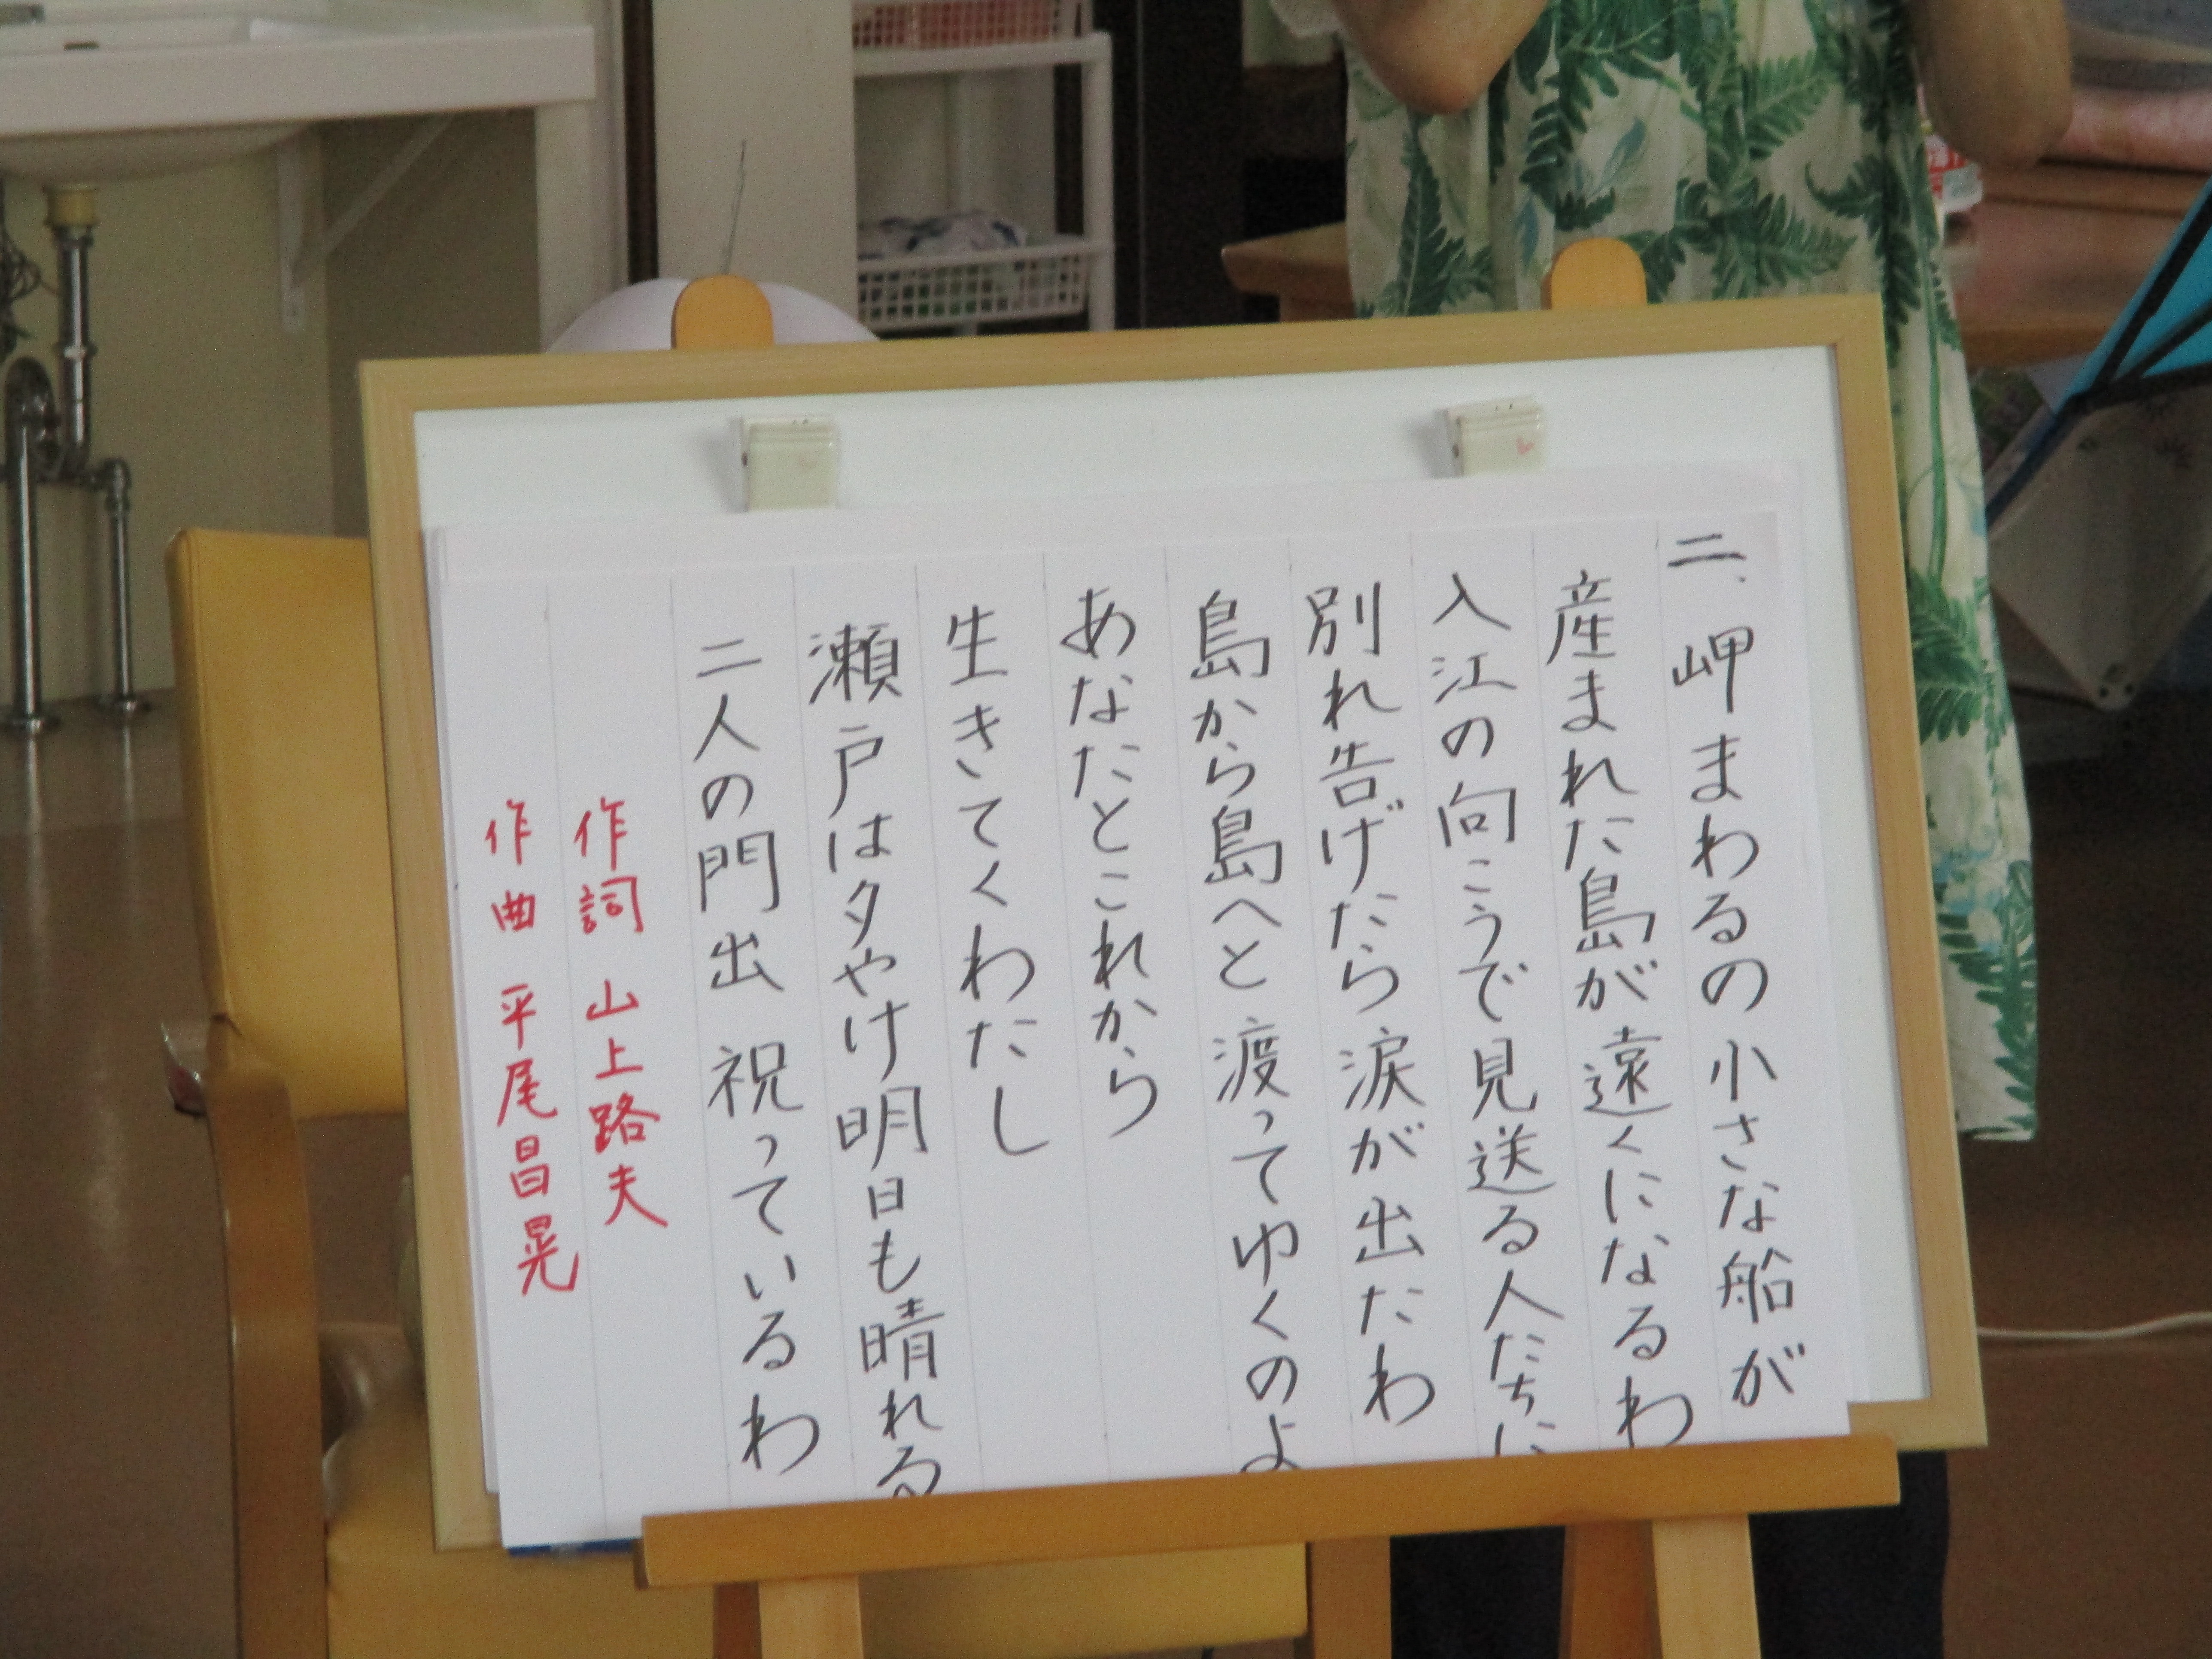 二、岬まわるの小さな船が
産まれた島が遠くになるわ
入江の向こうで見送る人たちに
別れ告げたら涙が出たわ
島から島へと渡ってゆくのよ
あなたとこれから
生きてくわたし
瀬戸は夕やけ明日も晴れる
二人の門出 祝っているわ
作詞 山上路夫
作曲 平尾昌晃